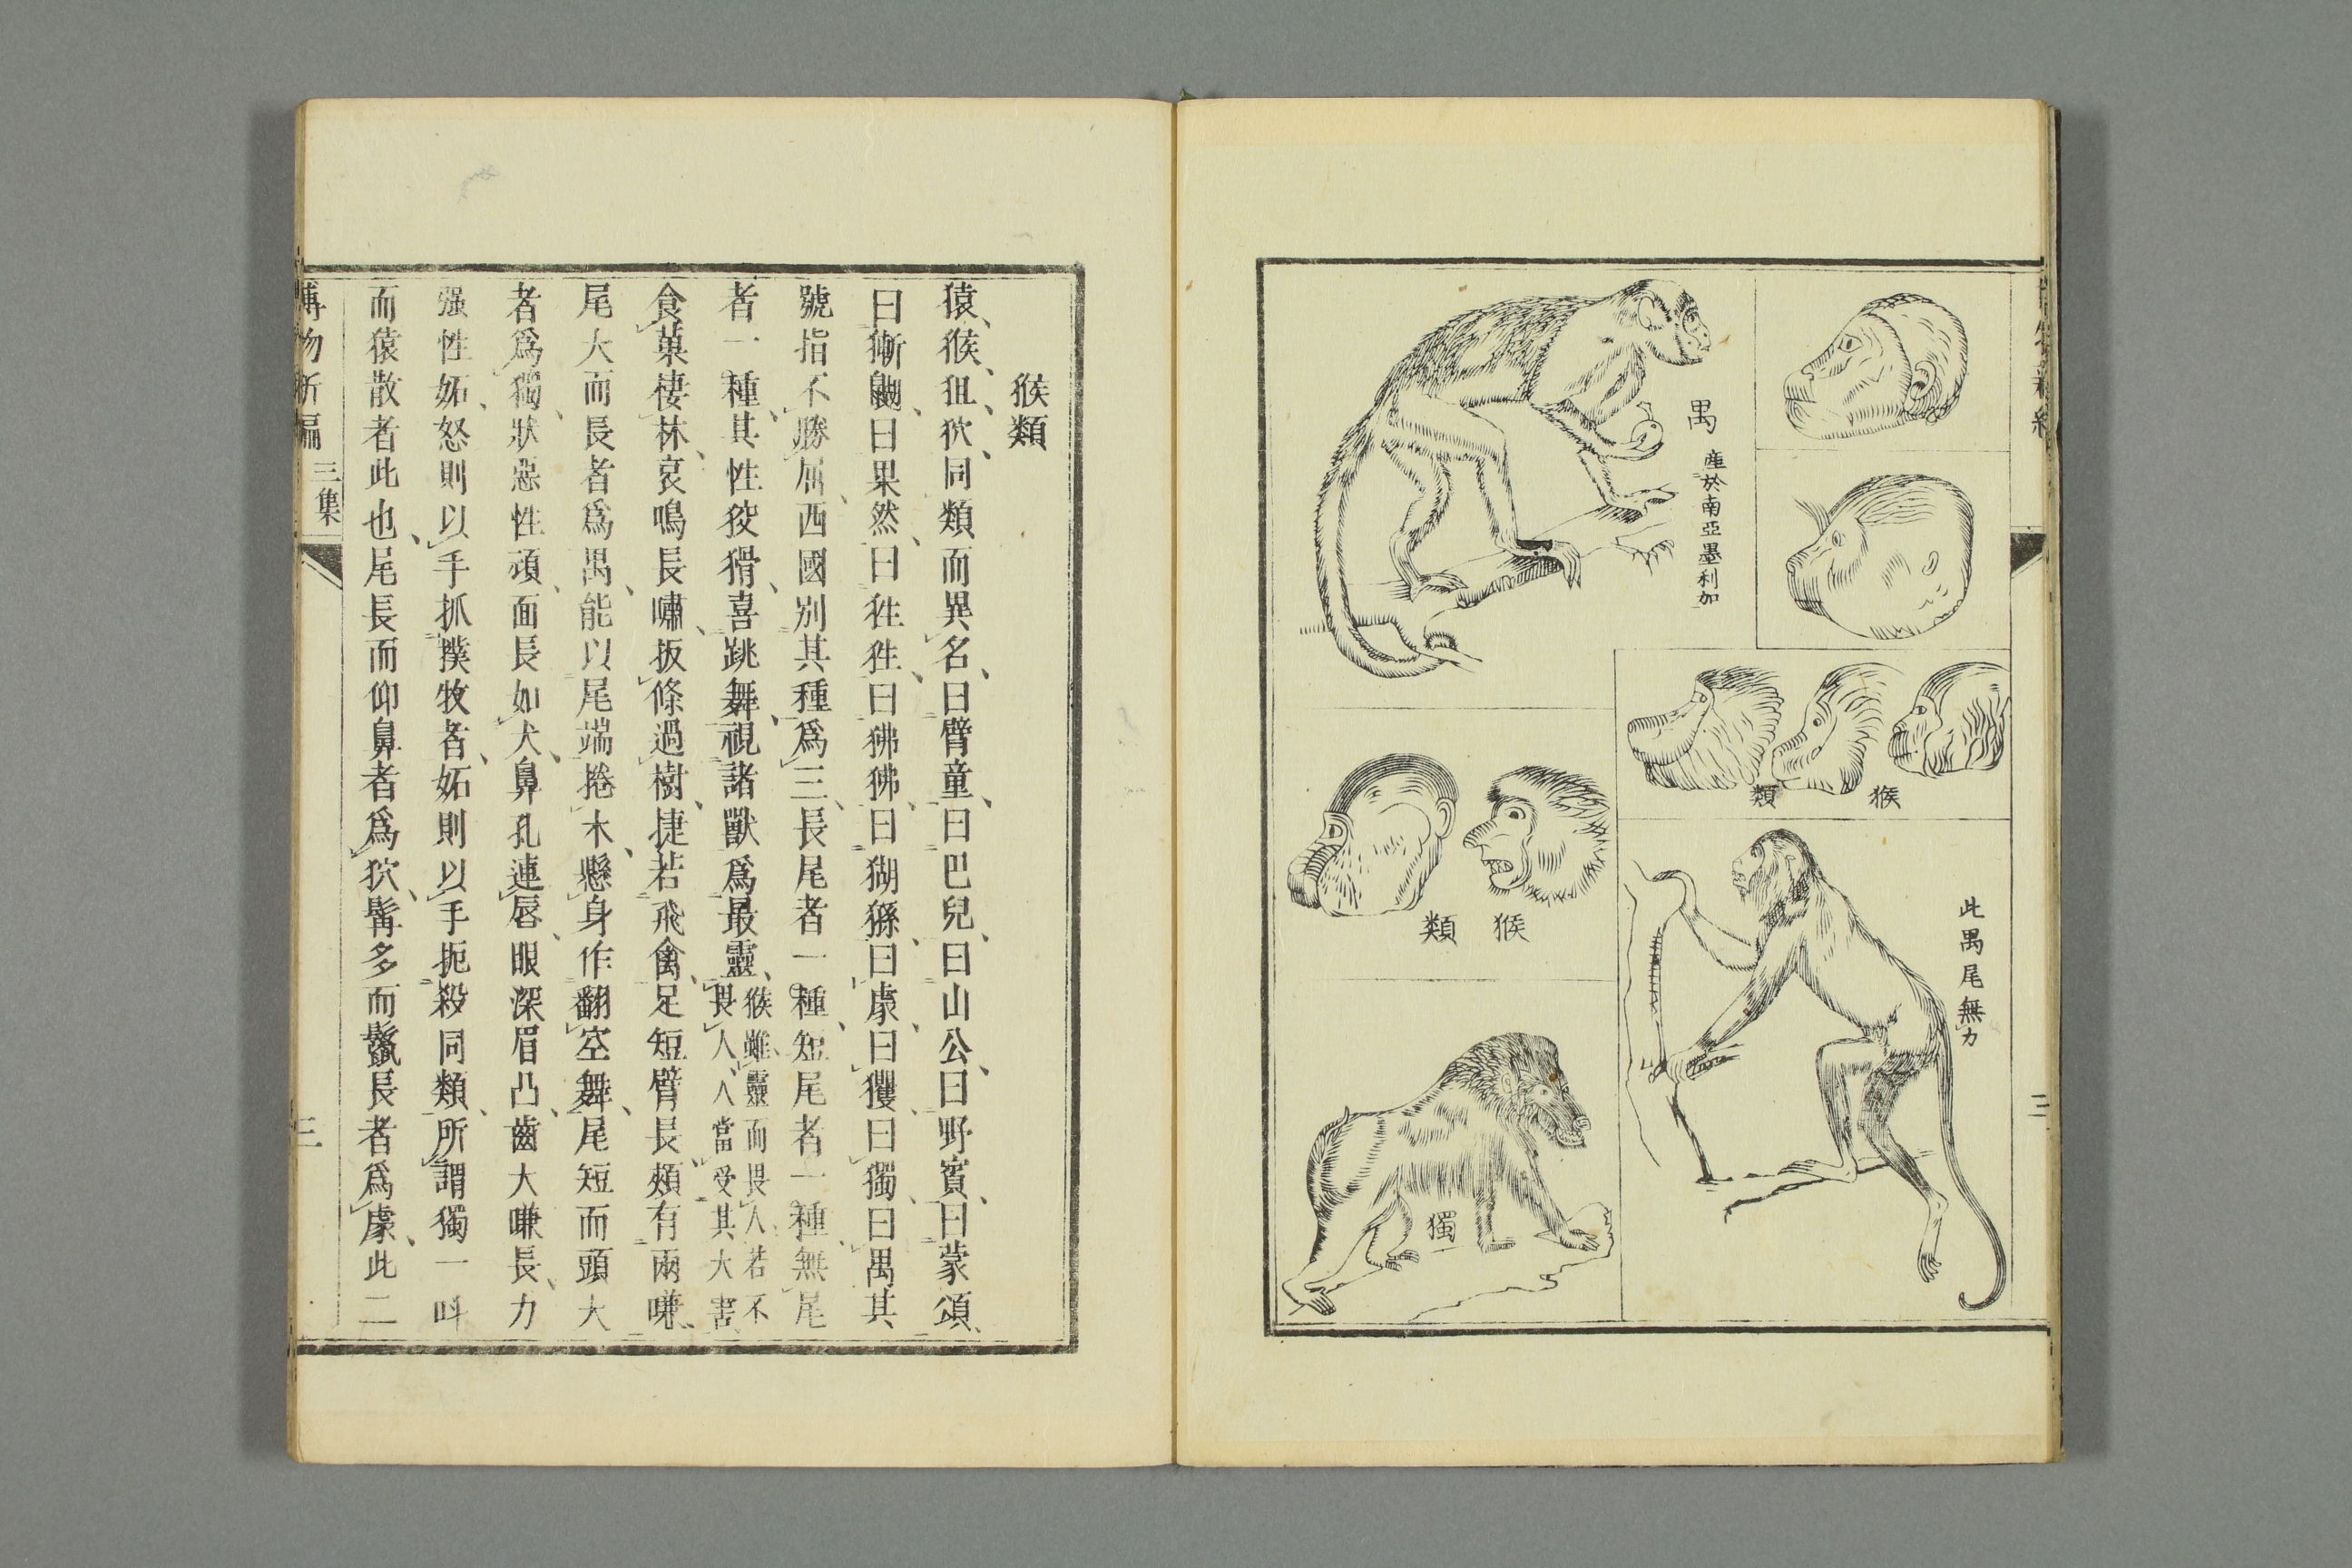 禺
産於南亞墨利加
猴類
猴類
此禺尾無力
獨
三
猴類
猿、猴、狙、狖、同類而異名、曰臂童、曰巴兒、曰山公、曰野賓、曰蒙頌、
曰果然、曰狌狌、曰狒狒、曰猢猻、曰豦、曰玃、曰獨、曰禺、其
號指不勝屈、西國別其種爲三、長尾者一種、短尾者一種、無尾
者一種、其性狡猾、喜跳舞、視諸獸爲最靈、猴雖靈而畏人、若不畏人、人當受其大害、
食菓棲林、哀鳴長嘯、扳條過樹、捷若飛禽、足短臂長、頰有兩嗛、
尾大而長者爲禺、能以尾端捲木、懸身作翻空舞、尾短而頭大
者爲獨、狀惡性頑、面長如犬、鼻孔連唇、眼深眉凸、齒大嗛長、力
强性妬、怒則以手抓撲牧者、妬則以手扼殺同類、所謂獨一叫
而猿散者此也、尾長而仰鼻者爲狖、髯多而鬣長者爲豦、此二
博物新編
三集
三